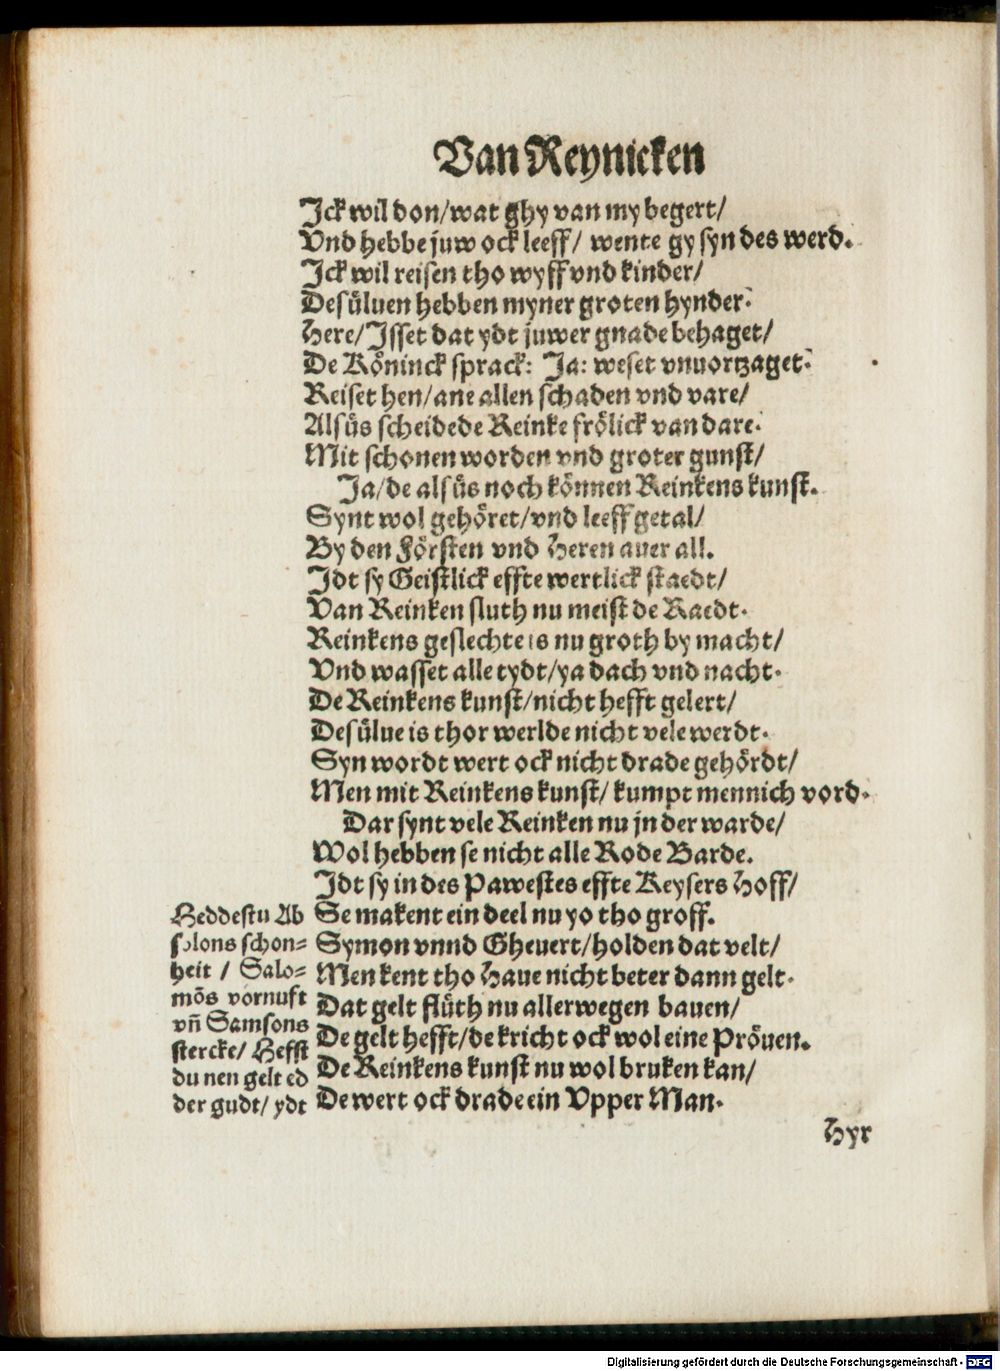 Van Reynicken
Jck wil don/wat ghy van my begert/
Vnd hebbe juw ock leeff/ wente gy syn des werd.
Jck wil reisen tho wyff vnd kinder/
Desüluen hebben myner groten hynder.
Here/Jsset dat ydt juwer gnade behaget/
De Köninck sprack: Ja: weset vnuortzaget.
Reiset hen/ane allen schaden vnd vare/
Alsüs scheidede Reinke frölick van dare.
Mit schonen worden vnd groter gunst/
Ja/de alsüs noch können Reinkens kunst.
Synt wol gehöret/vnd leeff getal/
By den Försten vnd Heren auer all.
Jdt sy Geistlick effte wertlick staedt/
Van Reinken sluth nu meist de Raedt.
Reinkens geslechte is nu groth by macht/
Vnd wasset alle tydt/ya dach vnd nacht.
De Reinkens kunst/nicht hefft gelert/
Desülue is thor werlde nicht vele werdt.
Syn wordt wert ock nicht drade gehördt/
Men mit Reinkens kunst/ kumpt mennich vord.
Dar synt vele Reinken nu jn der warde/
Wol hebben se nicht alle Rode Barde.
Jdt sy in des Pawestes effte Keysers Hoff/
Se makent ein deel nu yo tho groff.
Symon vnnd Gheuert/holden dat velt/
Men kent tho Haue nicht beter dann gelt.
Dat gelt flüth nu allerwegen bauen/
De gelt hefft/de kricht ock wol eine Pröuen.
De Reinkens kunst nu wol bruken kan/
De wert ock drade ein Vpper Man.
Heddestu Ab
solons schon=
heit / Salo=
mōs vornuft
vn̄ Samsons
stercke/ Hefst
du nen gelt ed
der gudt/ ydt
Hyr
Digitalisierung gefördert durch die Deutsche Forschungsgemeinschaft - DFG